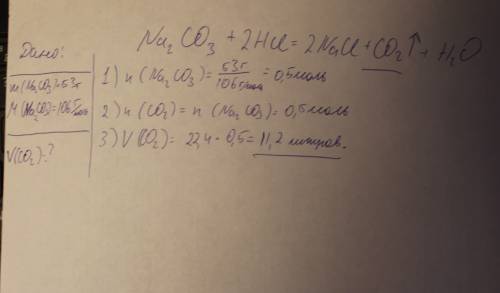 Na₂CO₃ + 2HCl = 2NaCl + CO₂↑ + H₂O
Дано:
m(Na₂CO₃)=53г
M(Na₂CO₃)=106г/моль
V(CO₂)-?
1) n(Na₂CO₃)= 53г/106г/моль = 0,5моль
2) n(CO₂) = n(Na₂CO₃)= 0,5моль
3) V(CO₂)= 22,4 · 0,5= 11,2 литров.